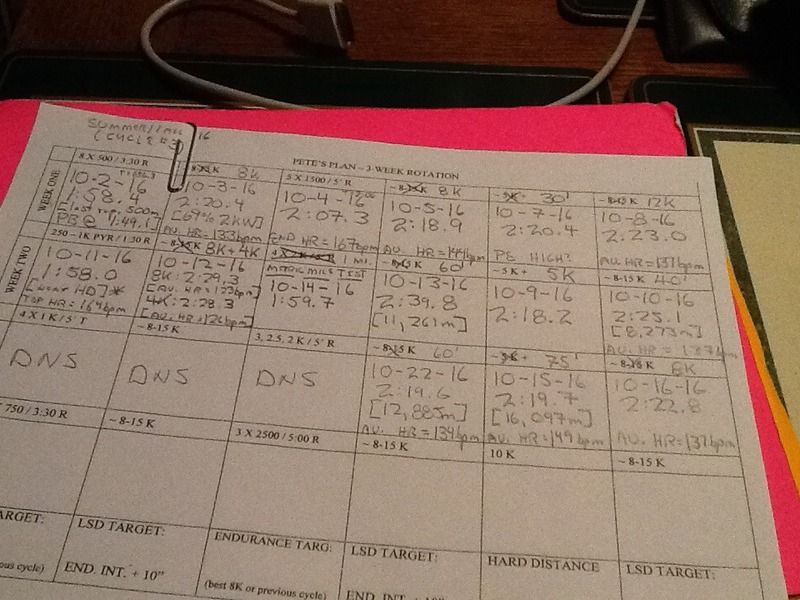 SUMMER/FALL '16
(CYCLE #3)
PETE'S PLAN – 3-WEEK ROTATION
WEEK ONE
8 X 500 / 3:30 R
10-2-16
1:58.4
PB @ 1:49.1
8K
10-3-16
2:20.4
[67% 2KW]
AV. HR = 133bpm
5 X 1500 / 5' R
10-4-16
2:07.3
END HR = 167bpm
~8-15 K 8K
10-5-16
2:18.9
AV. HR = 144bpm
~5K+ 30'
10-7-16
2:20.4
PB HIGH?
~8-15 K 12K
10-8-16
2:23.0
AV. HR = 137bpm
WEEK TWO
250 – 1K PYR / 1:30 R
10-11-16
1:58.0
[NEAR HD]*
TOP HR = 164bpm
~8-15 K 8K + 4K
10-12-16
8K: 2:29.3
[AV. HR = 123bpm]
4K: 2:28.3
[AV. HR = 126bpm]
1 MI.
METRIC MILE TEST
10-14-16
1:59.7
~8-15 K 60'
10-13-16
2:39.8
[11,261m]
~5K+ 5K
10-9-16
2:18.2
~8-15 K 40'
10-10-16
2:25.1
[8,273m]
AV. HR = 137bpm
4 X 1 K / 5' T
DNS
~8-15 K
DNS
3, 2.5, 2K / 5' R
DNS
~8-15 K 60'
10-22-16
2:19.6
[12,885m]
AV. HR = 134bpm
~5K+ 75'
10-15-16
2:19.7
[16,097m]
AV. HR = 149bpm
~8-15 K 8K
10-16-16
2:22.8
AV. HR = 137bpm
750 / 3:30 R
~8-15 K
3 X 2500 / 5:00 R
~8-15 K
10 K
~8-15 K
ARGET:
LSD TARGET:
ENDURANCE TARG:
LSD TARGET:
HARD DISTANCE
LSD TARGET:
ous cycle)
END. INT. + 10"
(best 8K or previous cycle)
END. INT. + 10"